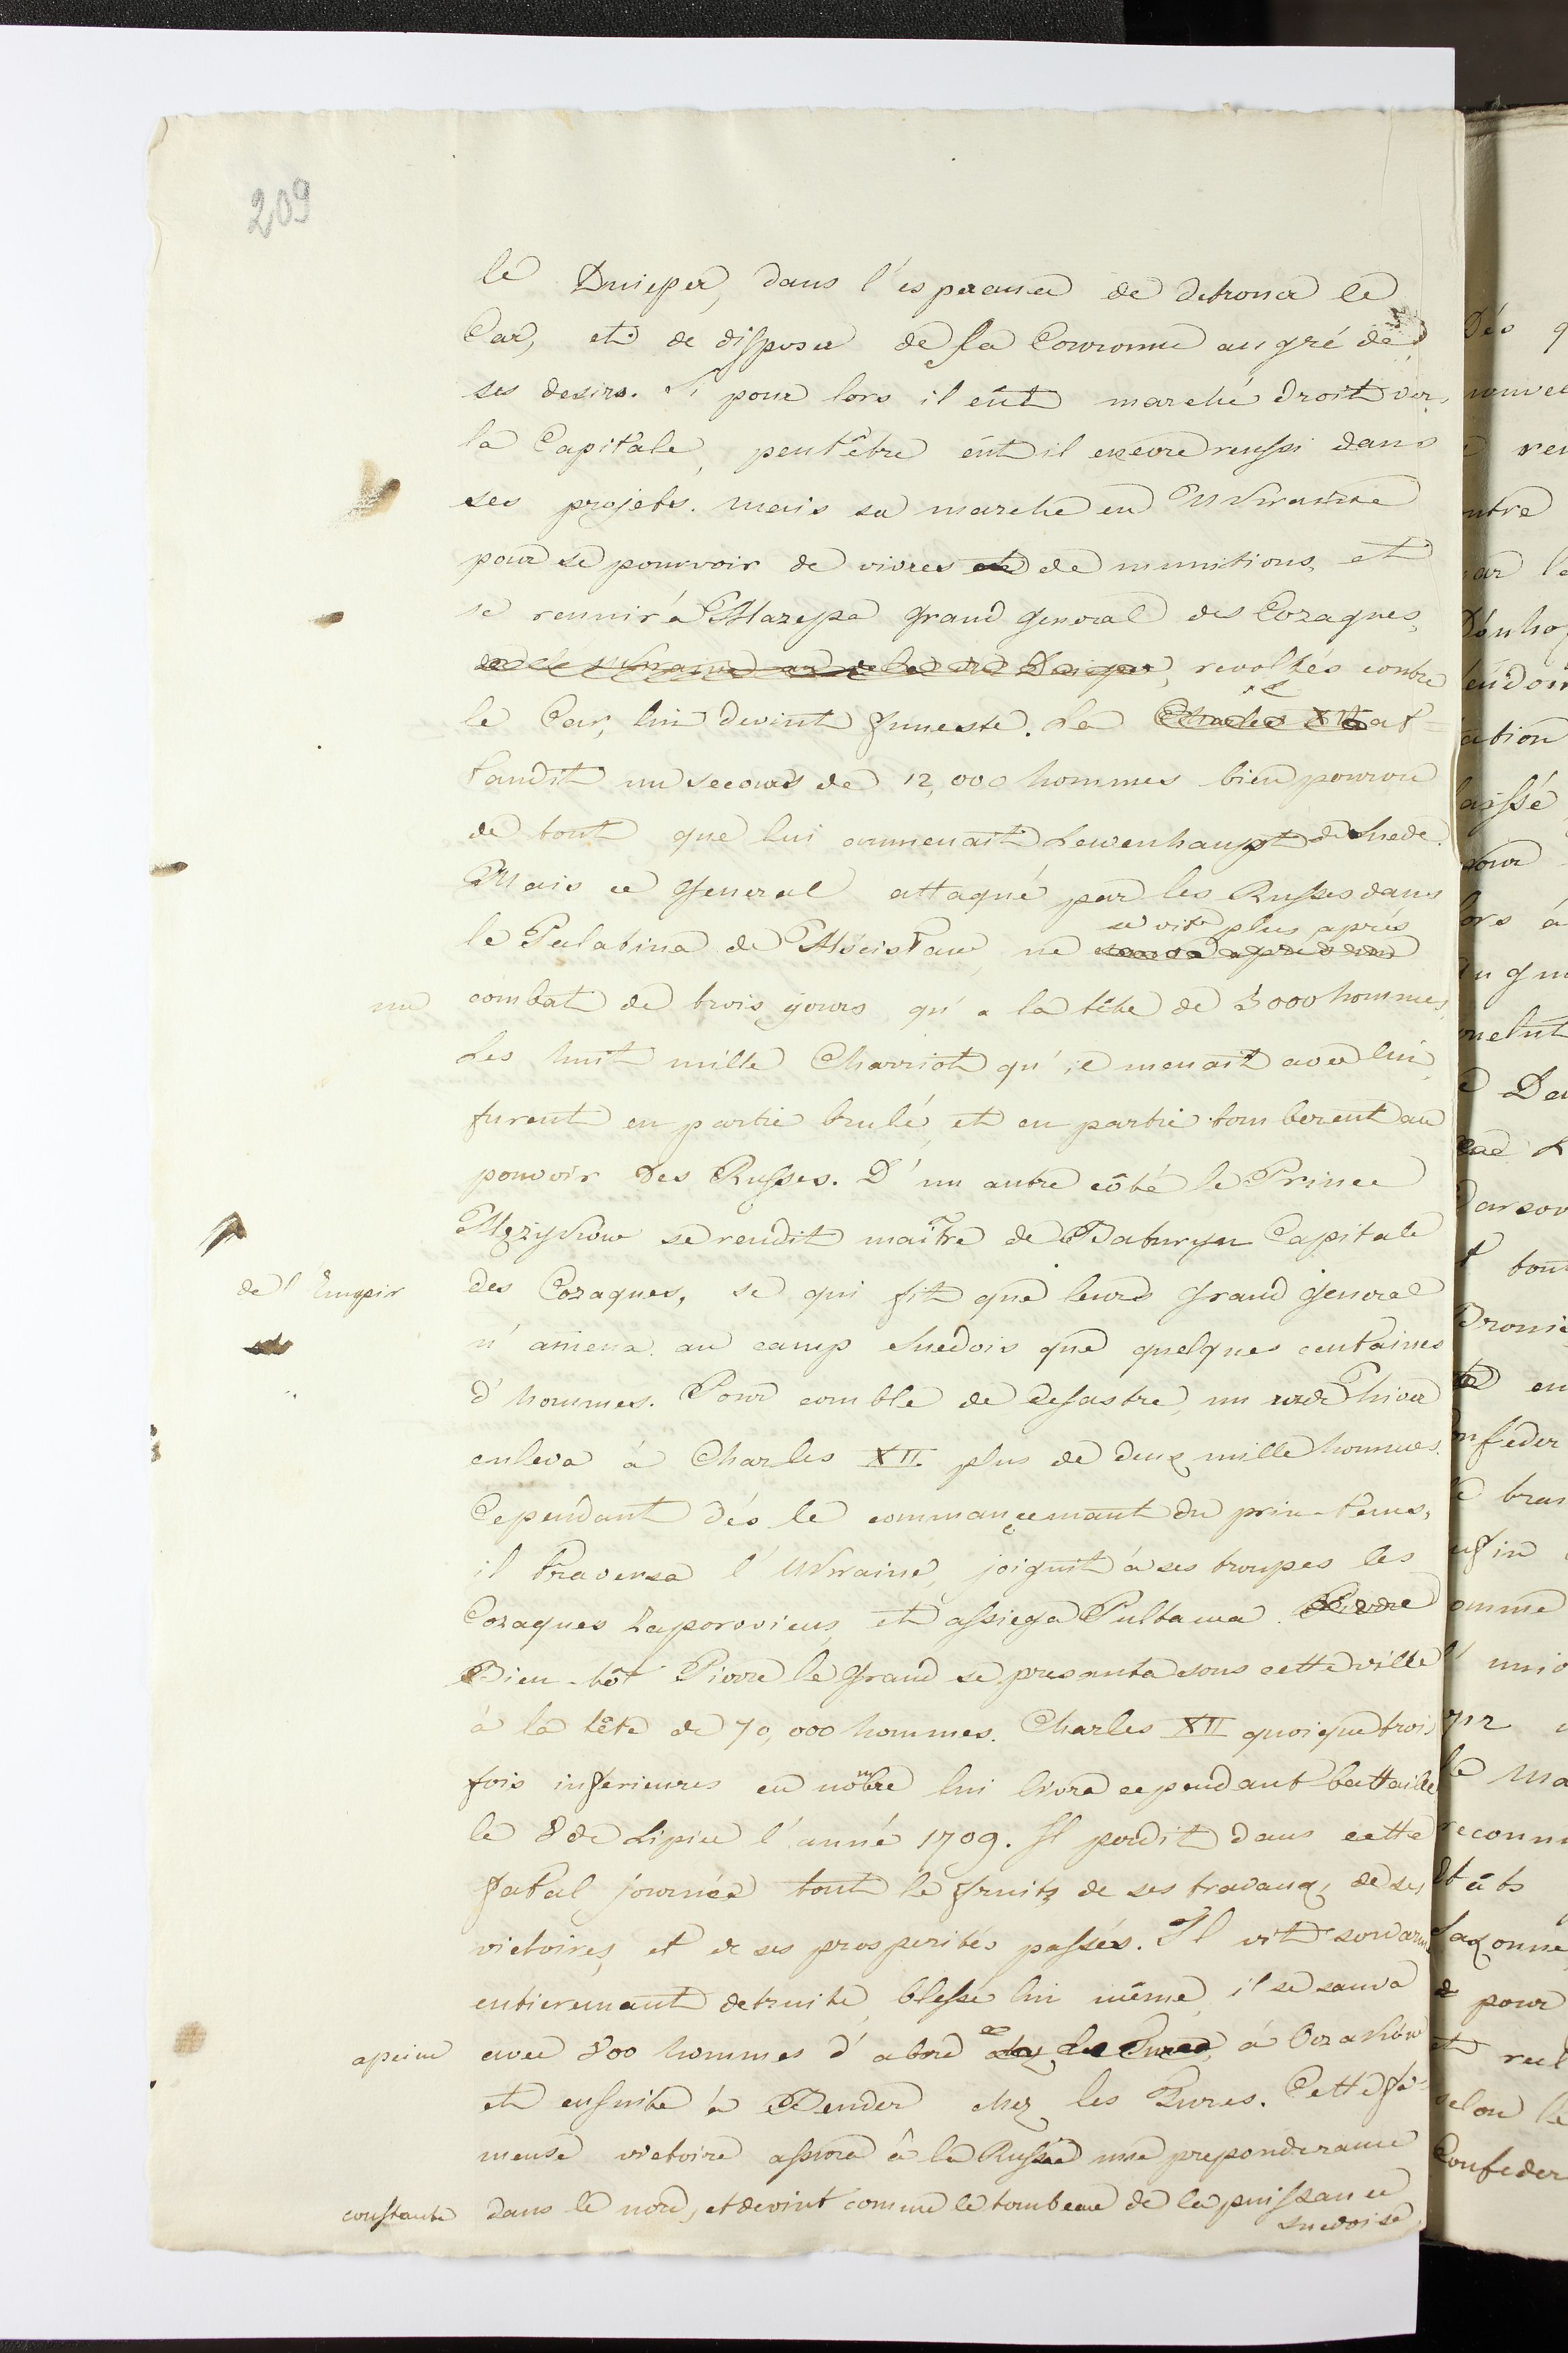 209
le Dnieper, dans l'esperance de detroner le
Car, et de disposer de sa Couronne au gré de
ses desirs. Si pour lors il eût marché droit vers
la Capitale, peut être eût il encore reussi dans
ses projets. mais sa marche en Ukraine
pour se pourvoir de vivres et de munitions, et
se reunir à Mazepa grand general des Cozaques,
revoltés contre
le Car, lui devint funeste. La il Charles XII at-
tandit un secours de 12,000 hommes bien pourvu
de tout que lui ammenait Lewenhaupt de Suede.
Mais ce General attaqué par les Russes dans
le Palatina de Mscislaw, ne
se vit plus après
un combat de trois jours qu'a la tête de 5000 hommes,
Les huit mille Charriots qu'il menait avec lui,
furent en partie brulé, et en partie tomberent au
pouvoir des Russes. D'un autre côté le Prince
Męzykow se rendit maître de Baturyn Capitale
de l'Empir des Cozaques, se qui fit que leurs grand general
n'amena au camp Suedois que quelques centaines
d'hommes. Pour comble de desastre, un rude hiver
enleva à Charles XII plus de deux mille hommes.
Cependant dés le commançemant du prin-tems,
il traversa l'Ukraine, joignit à ses troupes les
Cozaques Zaporoviens, et assiega Pultawa. Pierre
Bien-tôt Pierre le Grand se presenta sous cette ville
à la tête de 70,000 hommes. Charles XII quoique trois
fois inferieures en nombre lui livra cependant battaille
le 8 de Lipiec l'année 1709. Il perdit dans cette
fatal journée tout le fruits de ses travaux, de ses
victoires, et de ses prosperités passés. Il vit son armé
entieremant detruite, blessé lui même, il se sauva
apeine avec 800 hommes d'abord à Oczaków
et ensuite à Bender chez les Turcs. Cette fa-
meuse victoire assura à la Russie une preponderance
constante dans le nord, et devint comme le tombeau de la puissance
suedoise.
Dés q
nouvel
ntre
ar le
ation
laissé
pour
lors à
Da
tout
en
onfeder
le bras
omme
l'unio
712
le ma
reconnu
Etâts
Saxonne
pour
et
selon le
Confeder